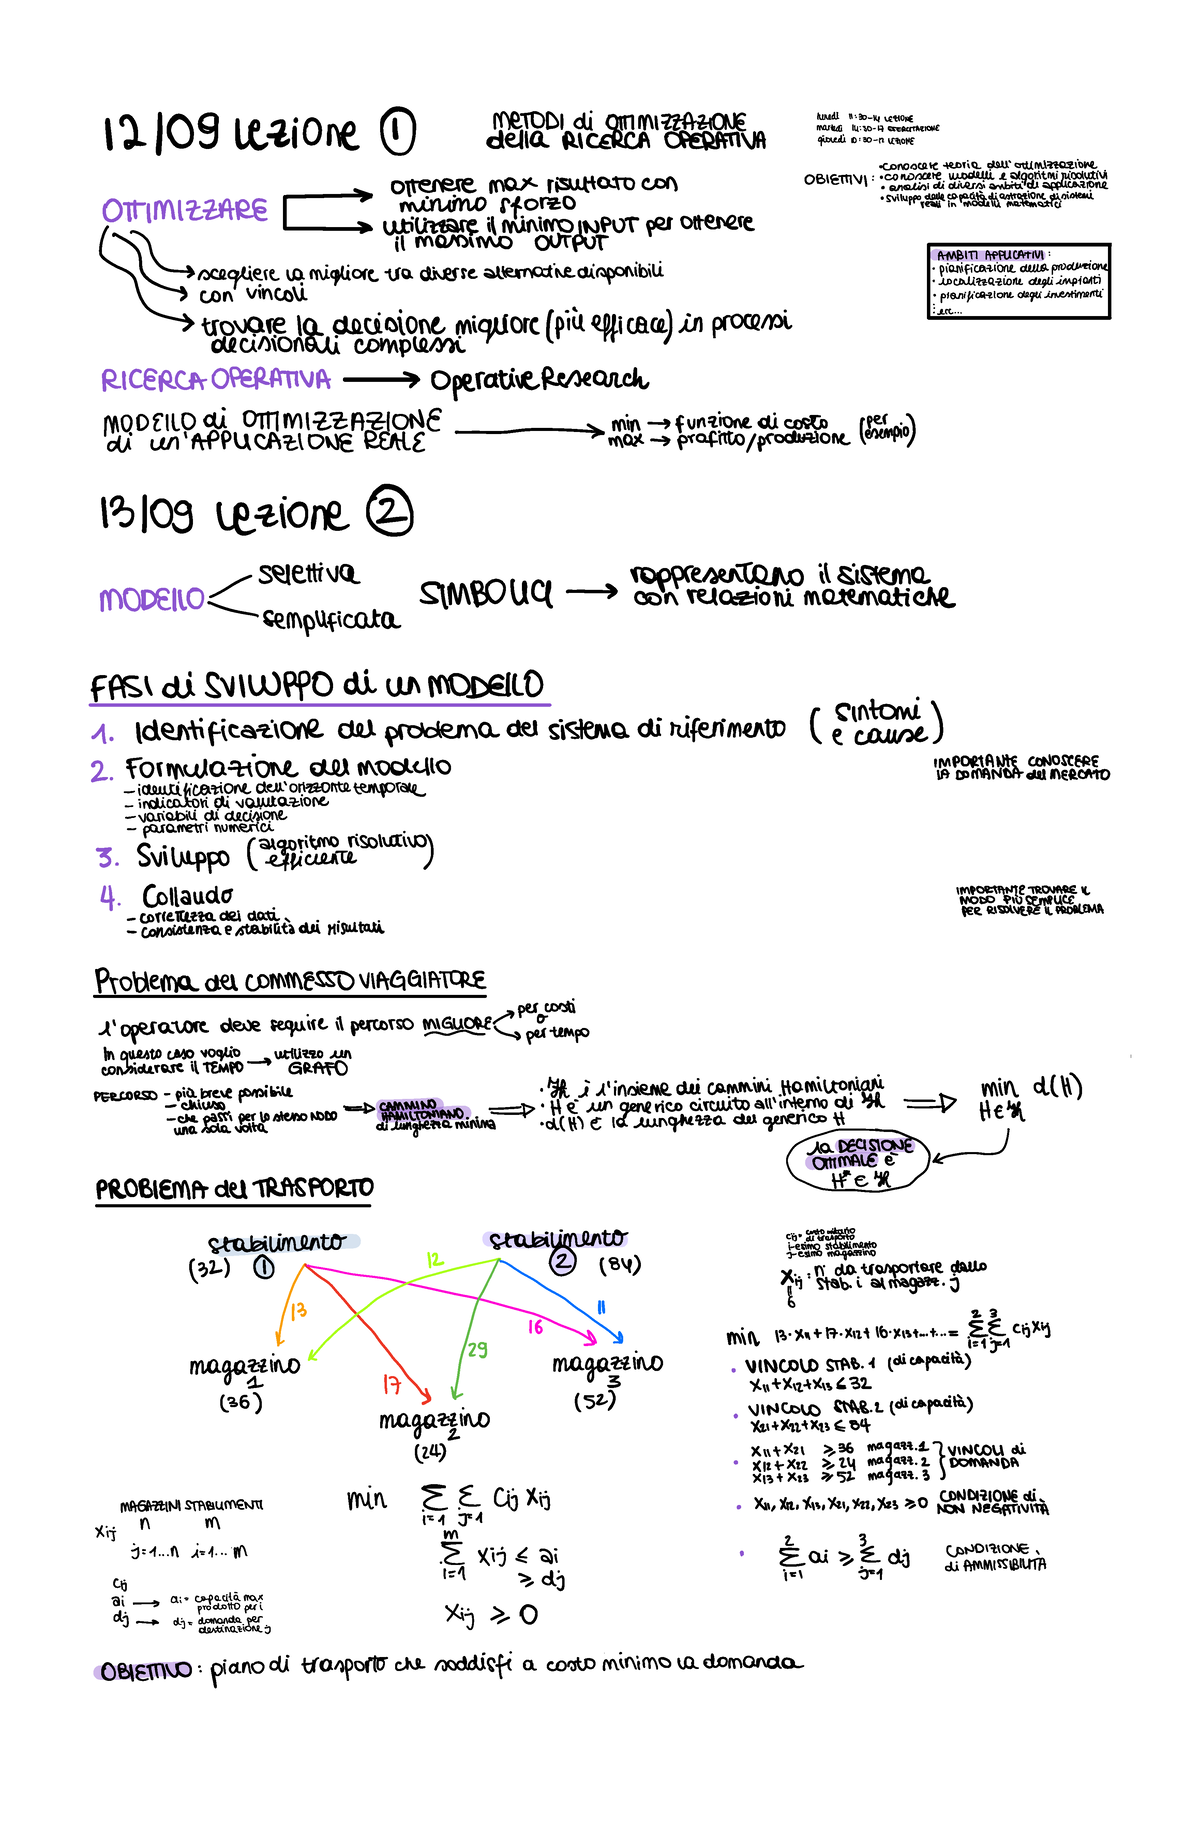 12/09 lezione 1
METODI di OTTIMIZZAZIONE
della RICERCA OPERATIVA
lunedì 11:30-14 LEZIONE
martedì 14:30-17 ESERCITAZIONE
giovedì 10:30-12 LEZIONE
OBIETTIVI: •conoscere teoria dell'ottimizzazione
•conoscere modelli e algoritmi risolutivi
•analisi di diversi ambiti di applicazione
•sviluppo delle capacità di astrazione di sistemi
reali in modelli matematici
OTTIMIZZARE
ottenere max risultato con
minimo sforzo
utilizzare il minimo INPUT per ottenere
il massimo OUTPUT
scegliere la migliore tra diverse alternative disponibili
con vincoli
trovare la decisione migliore (più efficace) in processi
decisionali complessi
AMBITI APPLICATIVI:
• pianificazione della produzione
• localizzazione degli impianti
• pianificazione degli investimenti
: ecc...
RICERCA OPERATIVA → Operative Research
MODELLO di OTTIMIZZAZIONE
di un'APPLICAZIONE REALE
min → funzione di costo
max → profitto/produzione (per esempio)
13/09 lezione 2
MODELLO
selettiva
semplificata
SIMBOLICI → rappresentano il sistema
con relazioni matematiche
FASI di SVILUPPO di un MODELLO
1. Identificazione del problema del sistema di riferimento (sintomi e cause)
2. Formulazione del modello
– identificazione dell'orizzonte temporale
– indicatori di valutazione
– variabili di decisione
– parametri numerici
IMPORTANTE CONOSCERE
LA DOMANDA del MERCATO
3. Sviluppo (algoritmo risolutivo efficiente)
4. Collaudo
– correttezza dei dati
– consistenza e stabilità dei risultati
IMPORTANTE TROVARE IL
MODO PIÙ SEMPLICE
PER RISOLVERE IL PROBLEMA
Problema del COMMESSO VIAGGIATORE
l'operatore deve seguire il percorso MIGLIORE
per costi
o
per tempo
In questo caso voglio
considerare il TEMPO → utilizzo un
GRAFO
PERCORSO – più breve possibile
– chiuso
– che passi per lo stesso NODO
una sola volta
⇒ CAMMINO
HAMILTONIANO
di lunghezza minima
⇒ • ℋ è l'insieme dei cammini Hamiltoniani
• H è un generico circuito all'interno di ℋ
• d(H) è la lunghezza del generico H
⇒ min d(H)
H∈ℋ
la DECISIONE
OTTIMALE è
H* ∈ ℋ
PROBLEMA del TRASPORTO
stabilimento
(32) 1
stabilimento
2 (84)
12
13
16
11
29
17
magazzino
1
(36)
magazzino
2
(24)
magazzino
3
(52)
cij= costo unitario
di trasporto
i-esimo stabilimento
j-esimo magazzino
Xij: n° da trasportare dallo
stab. i al magazz. j
6
min 13·x11+17·x12+16·x13+...+...= 2∑i=1 3∑j=1 cij xij
• VINCOLO STAB. 1 (di capacità)
X11+X12+X13 ≤ 32
• VINCOLO STAB. 2 (di capacità)
X21+X22+X23 ≤ 84
• X11+X21 ≥ 36 magazz. 1
X12+X22 ≥ 24 magazz. 2
X13+X23 ≥ 52 magazz. 3
VINCOLI di
DOMANDA
• X11, X12, X13, X21, X22, X23 ≥ 0 CONDIZIONE di
NON NEGATIVITÀ
• 2∑i=1 ai ≥ 3∑j=1 dj CONDIZIONE
di AMMISSIBILITÀ
MAGAZZINI STABILIMENTI
Xij n m
j=1...n i=1...m
cij
ai → ai = capacità max
prodotto per i
dj → dj = domanda per
destinazione j
min ∑i=1 ∑j=1 Cij Xij
m∑i=1 Xij ≤ ai
≥ dj
Xij ≥ 0
OBIETTIVO: piano di trasporto che soddisfi a costo minimo la domanda